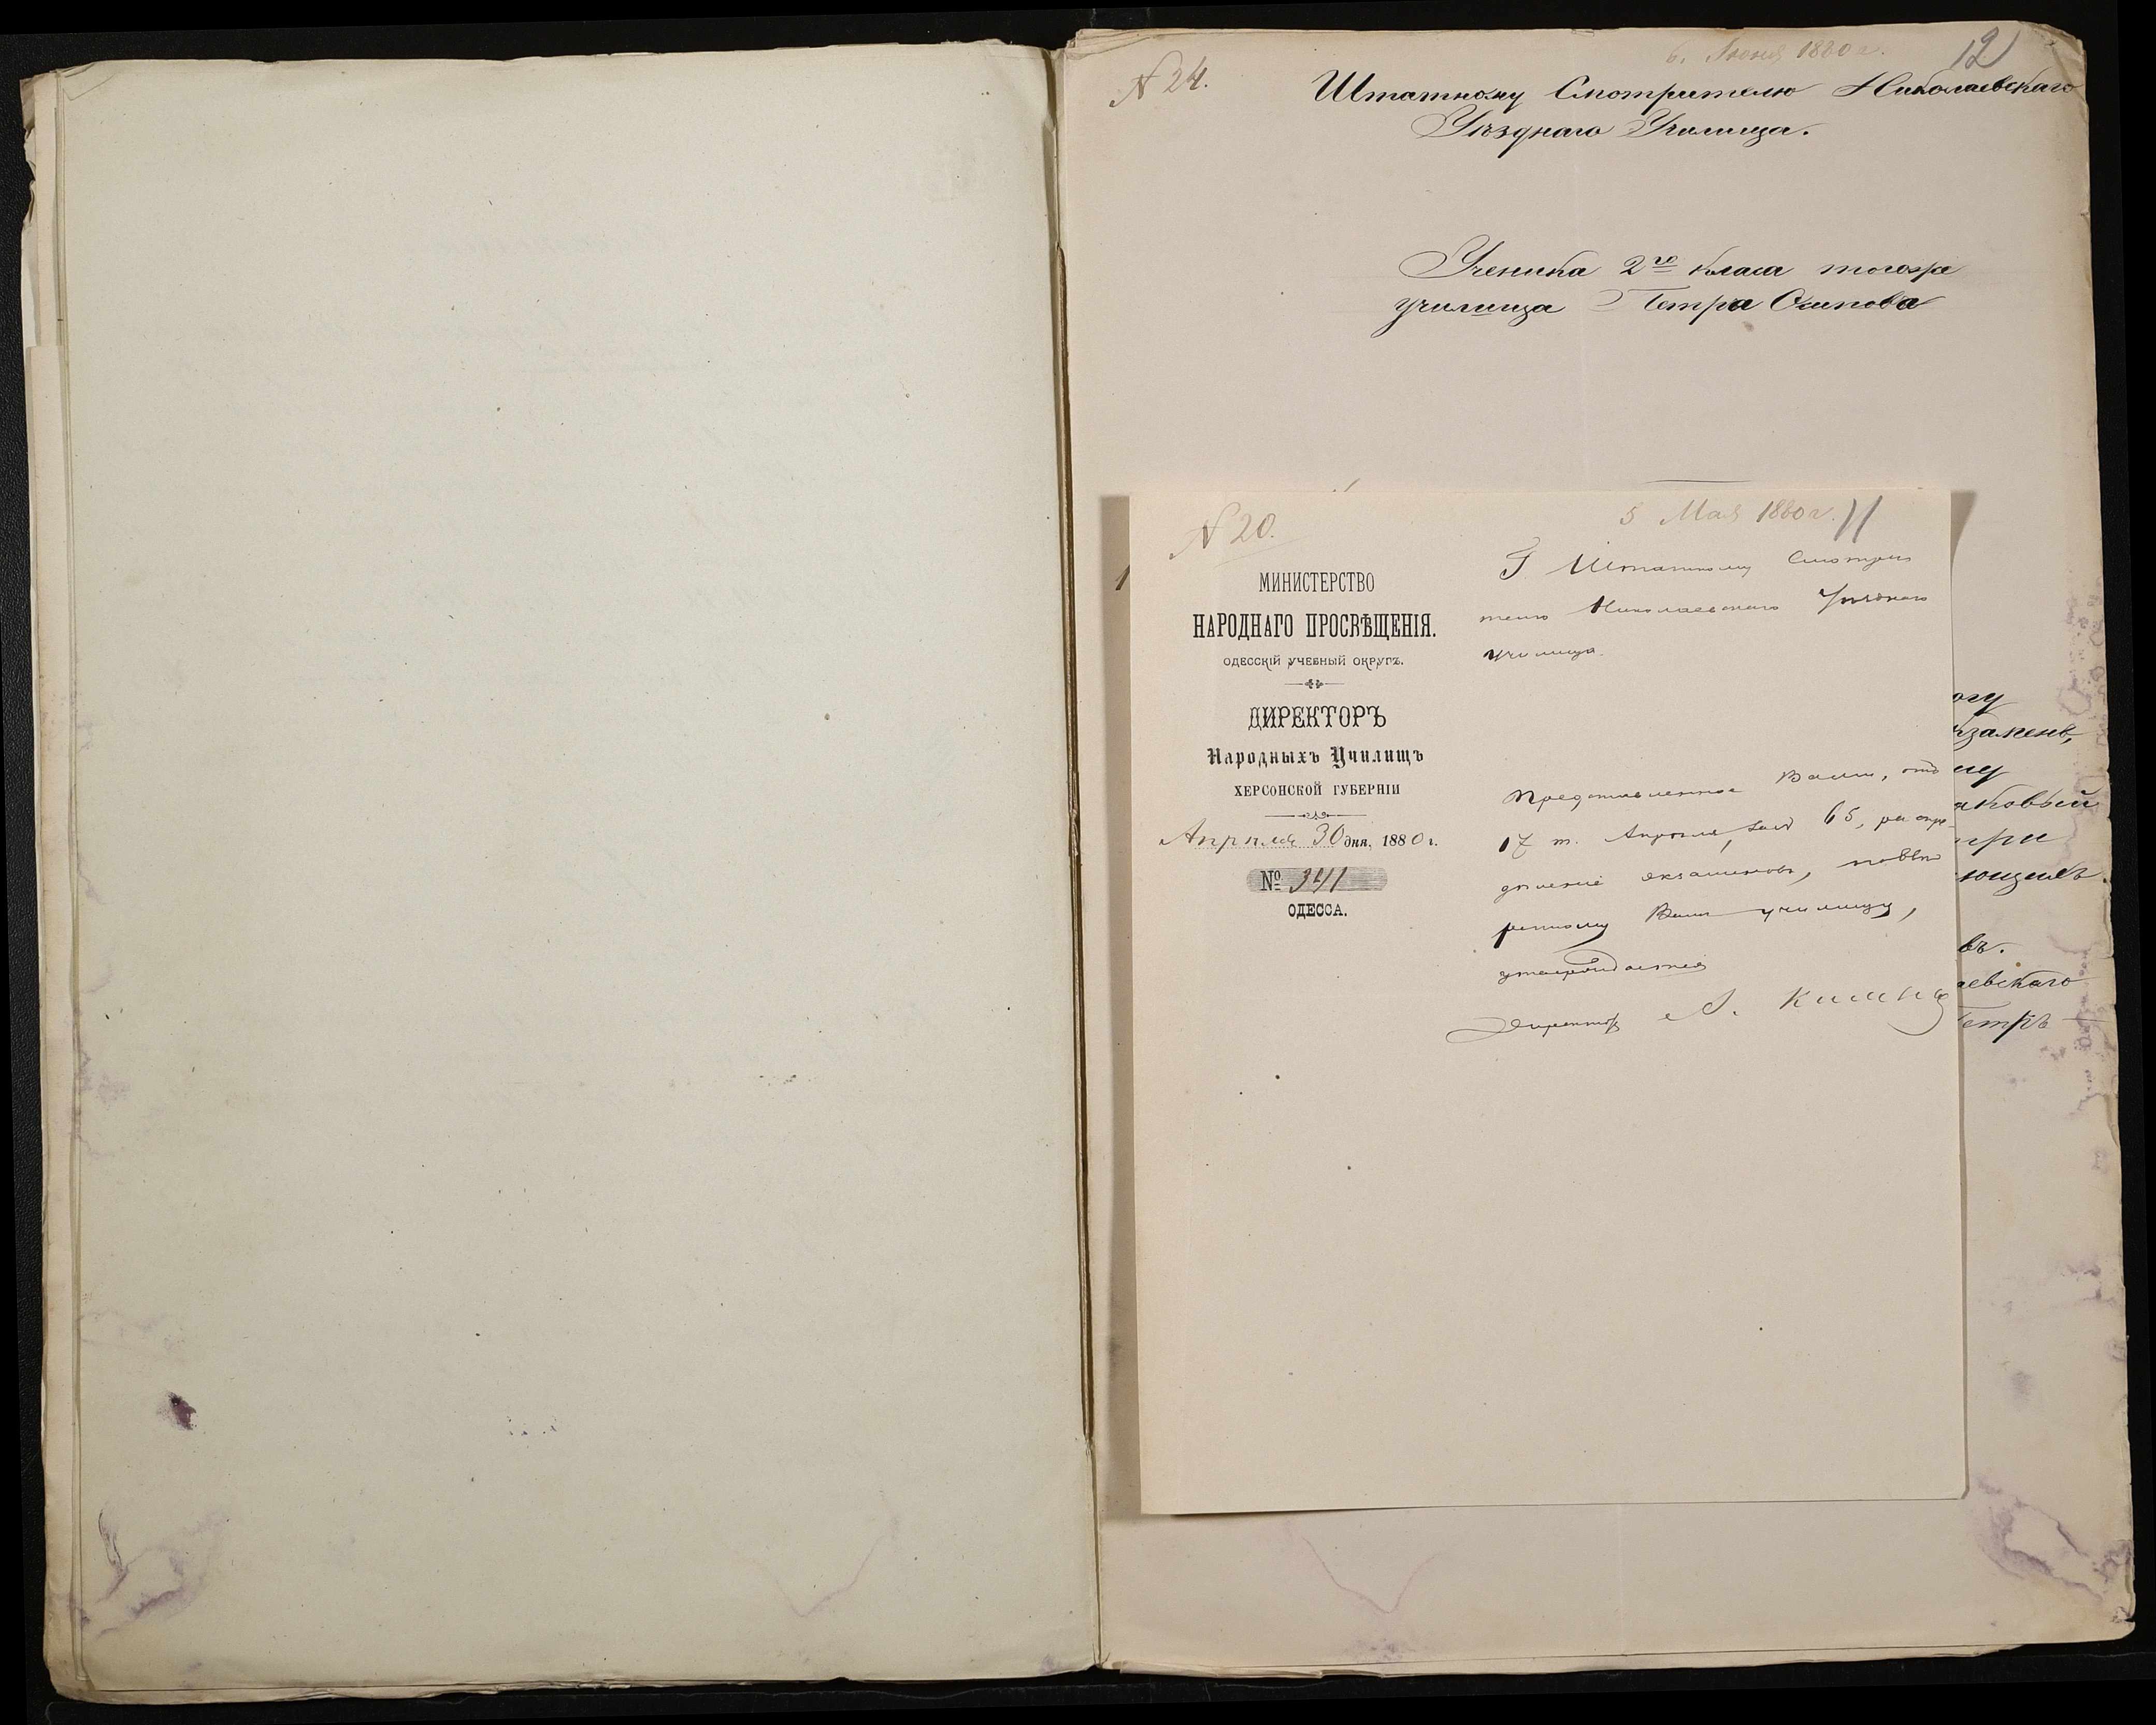 6. Июня 1880 г.
12
N 24.
Штатному Смотрителю Николаевскаго
Уѣзднаго Училища.
Ученика 2го класа тогоже
училища Петра Осипова
N 20.
5 Мая 1880 г. 11
МИНИСТЕРСТВО
НАРОДНАГО ПРОСВѢЩЕНІЯ.
ОДЕССКІЙ УЧЕБНЫЙ ОКРУГЪ.
ДИРЕКТОРЪ
Народныхъ Училищъ
ХЕРСОНСКОЙ ГУБЕРНІИ
Апрѣля 30 дня, 1880 г.
№ 341
ОДЕССА.
Г Штатному Смотри
телю Николаевскаго Уѣзднаго
училища.
Представленное Вами, отъ
17 т. Апрѣля, за № 65, распре-
дѣленіе экзаменовъ, по ввѣ
ренному Вамъ училищу,
утверждается
Директоръ А.
огу
кзаменъ,
му
аковый
при
ющихъ
въ.
аевскаго
Петръ